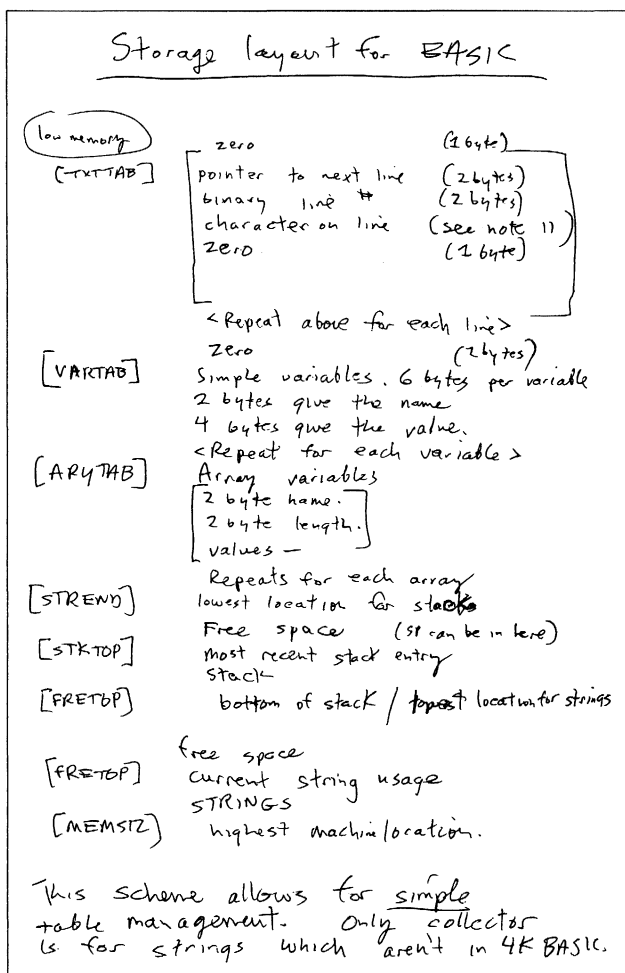 Storage layout for BASIC
low memory
zero (1 byte)
[TXTTAB] pointer to next line (2 bytes)
binary line # (2 bytes)
character on line (see note 11)
zero (1 byte)
<Repeat above for each line>
zero (2 bytes)
[VARTAB] Simple variables. 6 bytes per variable
2 bytes give the name
4 bytes give the value.
<Repeat for each variable>
[ARYTAB] Array variables
2 byte name.
2 byte length.
values —
Repeats for each array
[STREND] lowest location for stack
Free space (SP can be in here)
[STKTOP] most recent stack entry
stack
[FRETOP] bottom of stack / location for strings
free space
[FRETOP] current string usage
STRINGS
[MEMSIZ] highest machine location.
This scheme allows for simple
table management. Only collector
is for strings which aren't in 4K BASIC.